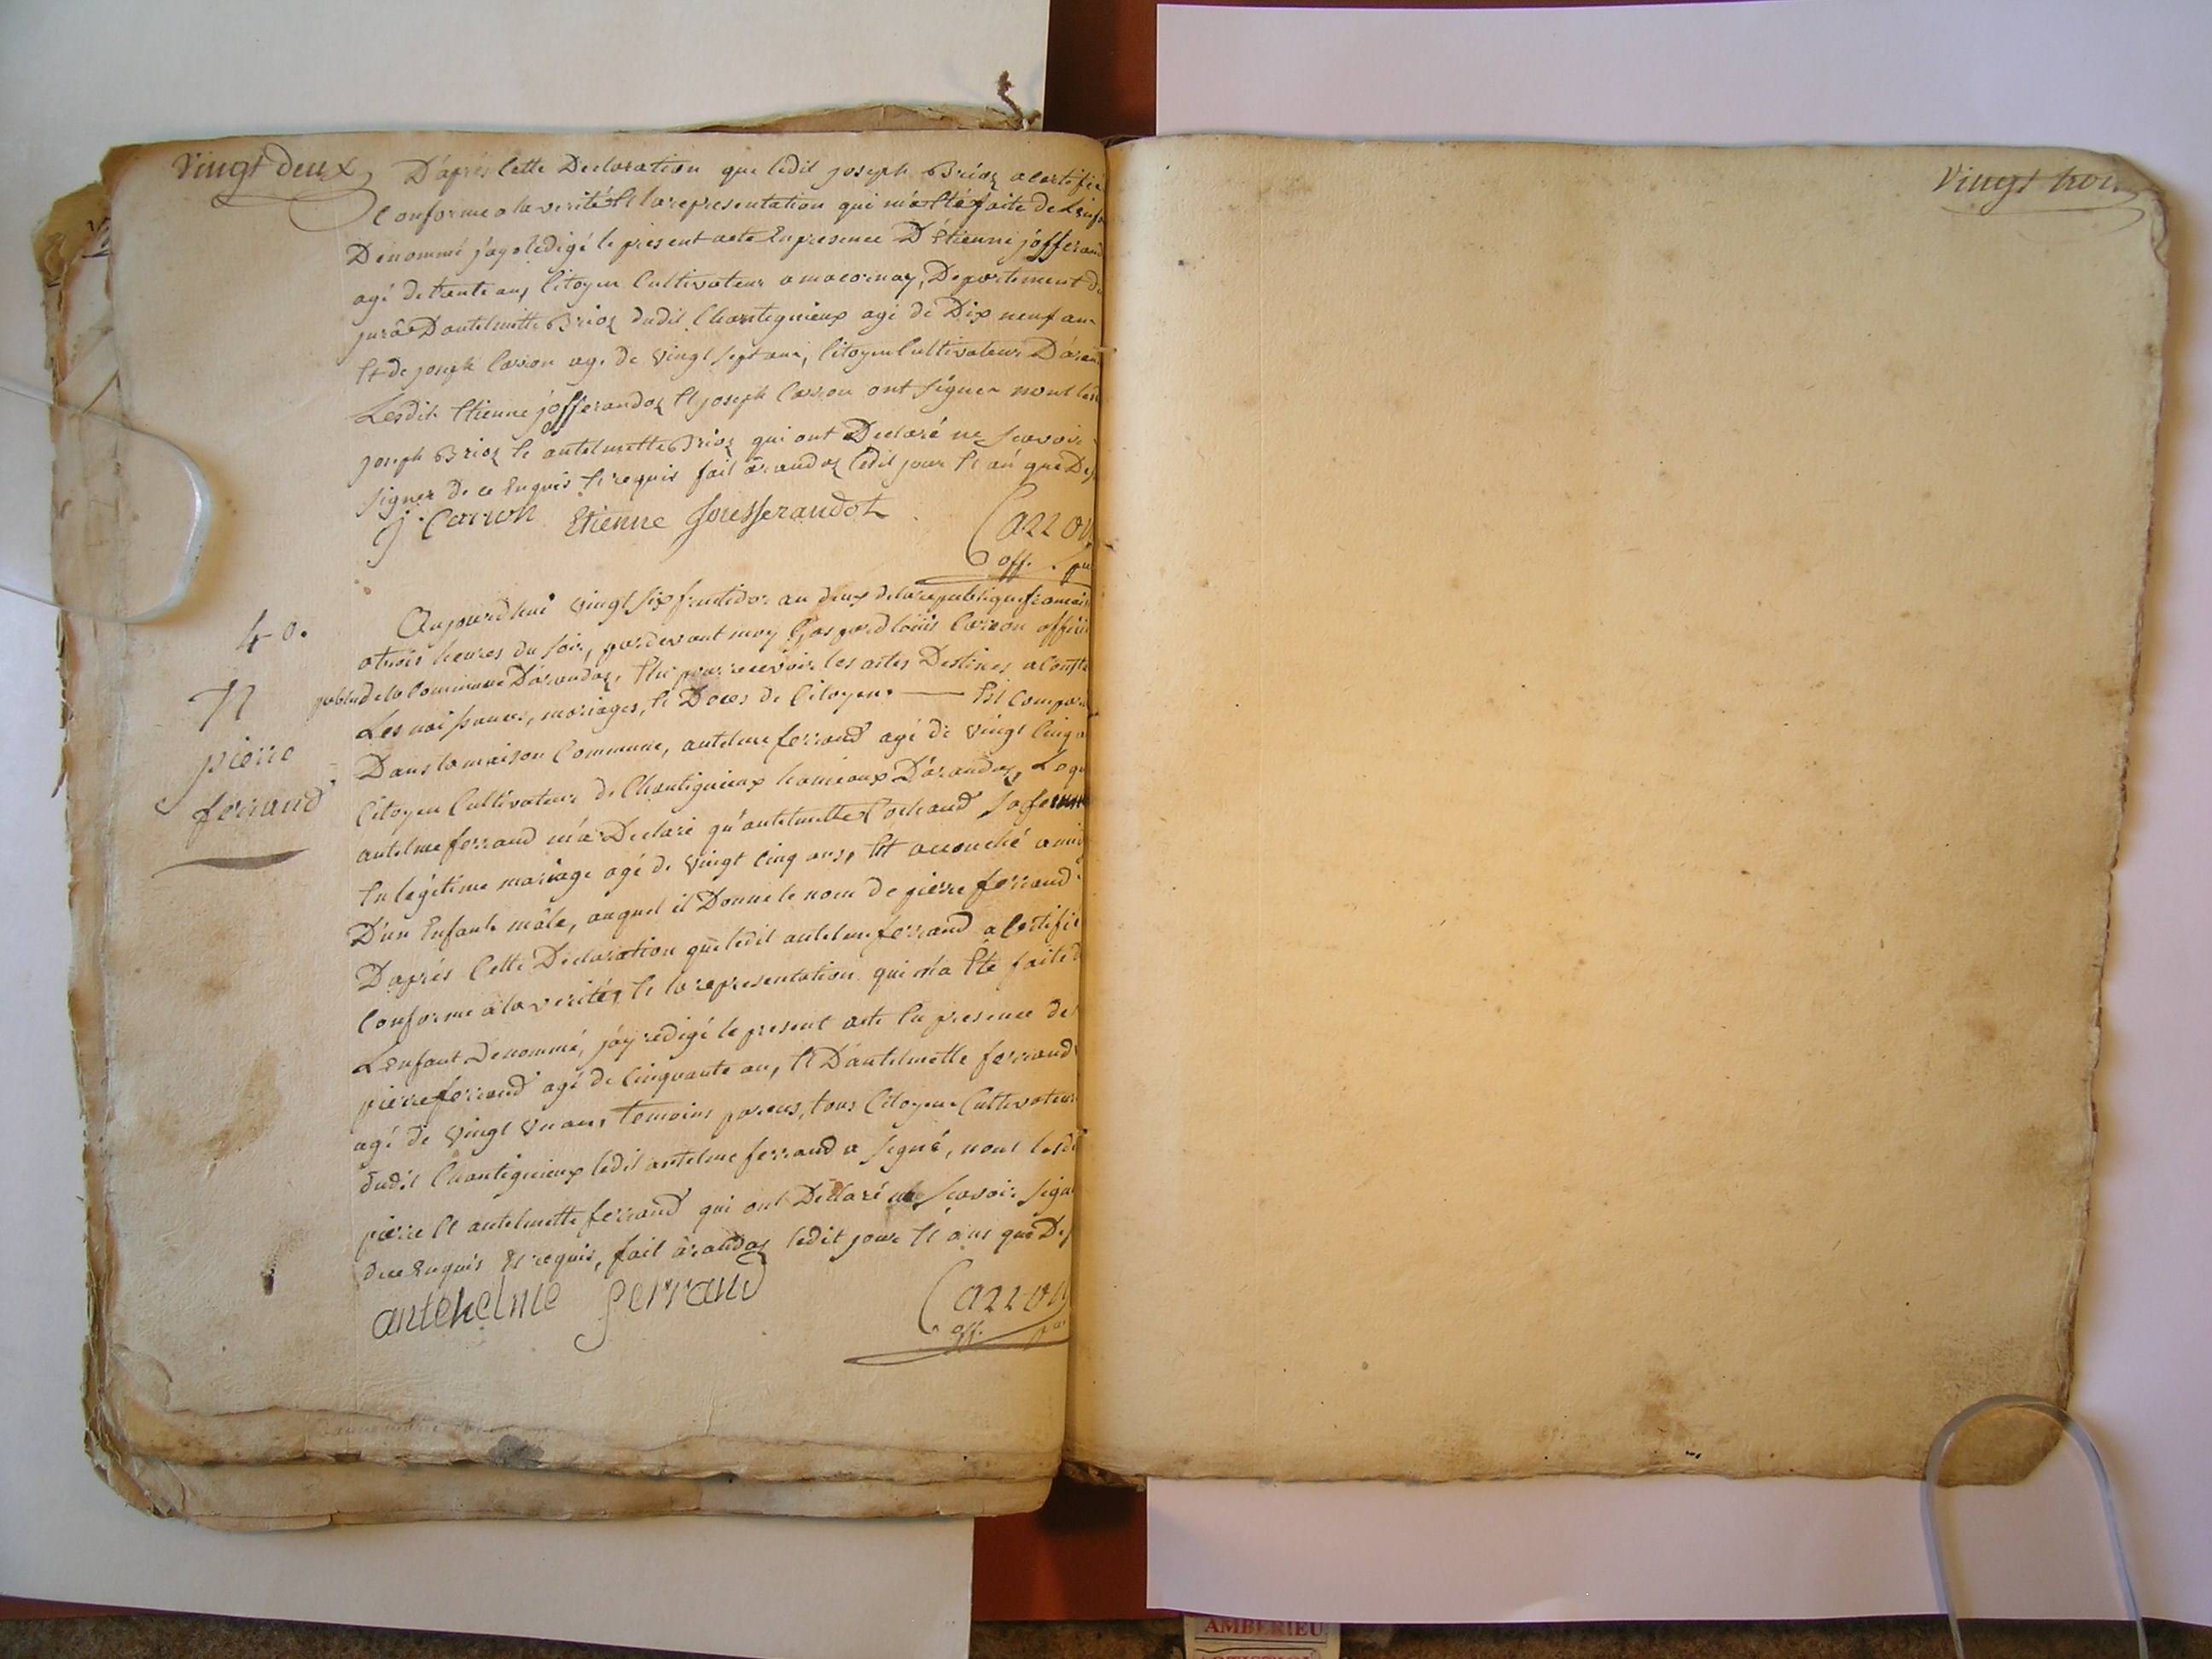 Vingt deux
D'aprés Cette Declaration que ledit joseph Brioz a certifié
Conforme a la verité Et la representation qui m'a Eté faite de Lenf
Dénommé j'ay redigé le present acte En presence D'Etienne jofferand
agé de trente ans, Citoyen Cultivateur a macornay, Departement du
jurâ D'antelmette Brioz dudit Chantignieux agé de Dix neuf ans
Et de joseph Carron age de vingt sept ans, Citoyen Cultivateur D'aran
Lesdits Etienne jofferandoz Et joseph Carron ont signer nont les
joseph Brioz Et antelmette Brioz qui ont Declaré ne scavoir
signer de ce Enquis Et requis fait à randoz ledit jour Et an que De
j. Carron Etienne Jousserandot
Carron
off. pu
40.
N
pierre
ferrand
Aujourdhui vingt six fructidor an deux de la republique francais
a trois heures du soir, pardevant moy Gaspard loüis Carron offici
public de la Commune D'arandaz, Elu pour recevoir les actes Destinés a Const
Les naissances, mariages, Et Deces de Citoyens — Est Compar
Dans la maison Commune, antelme ferrand agé de vingt Cinq
Citoyen Cultivateur de Chantignieux hameaux D'arandaz, Lequ
antelme ferrand m'a Declaré qu'antelmette Cochand sa femme
En legitime mariage agé de vingt Cinq ans, Est accouché
D'un Enfant mâle, auquel il Donne le nom de pierre ferrand
D'aprés Cette Declaration que ledit antelme ferrand a certifié
Conforme a la verité, Et la representation qui m'a Eté faite d
L'enfant Denommé, j'ay redigé le present acte En presence de
pierre ferrand agé de Cinquante an, Et D'antelmette ferrand
agé de vingt un an, temoins parens, tous Citoyens Cultivateur
dudit Chantignieux ledit antelme ferrand a signé, nont lesd
pierre Et antelmette ferrand qui ont Declaré ne scavoir sign
de ce Enquis Et requis, fait à randaz ledit jour Et ans que De
antehelme ferrand
Carron
off. pu
Vingt troi
AMBERIEU